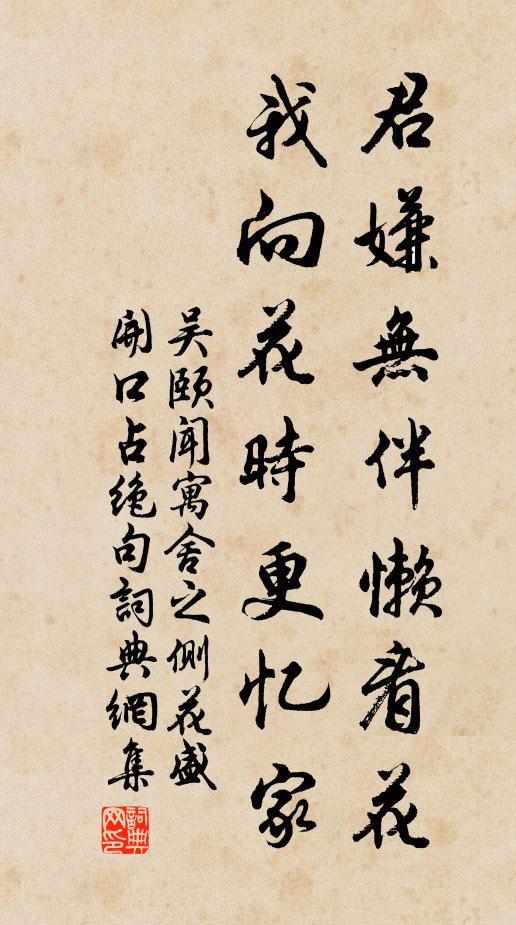 君嫌無伴懶看花
我向花時更忆家
吴頤闻寓舍之側花盛
開口占绝句詞典網集
詞典网印